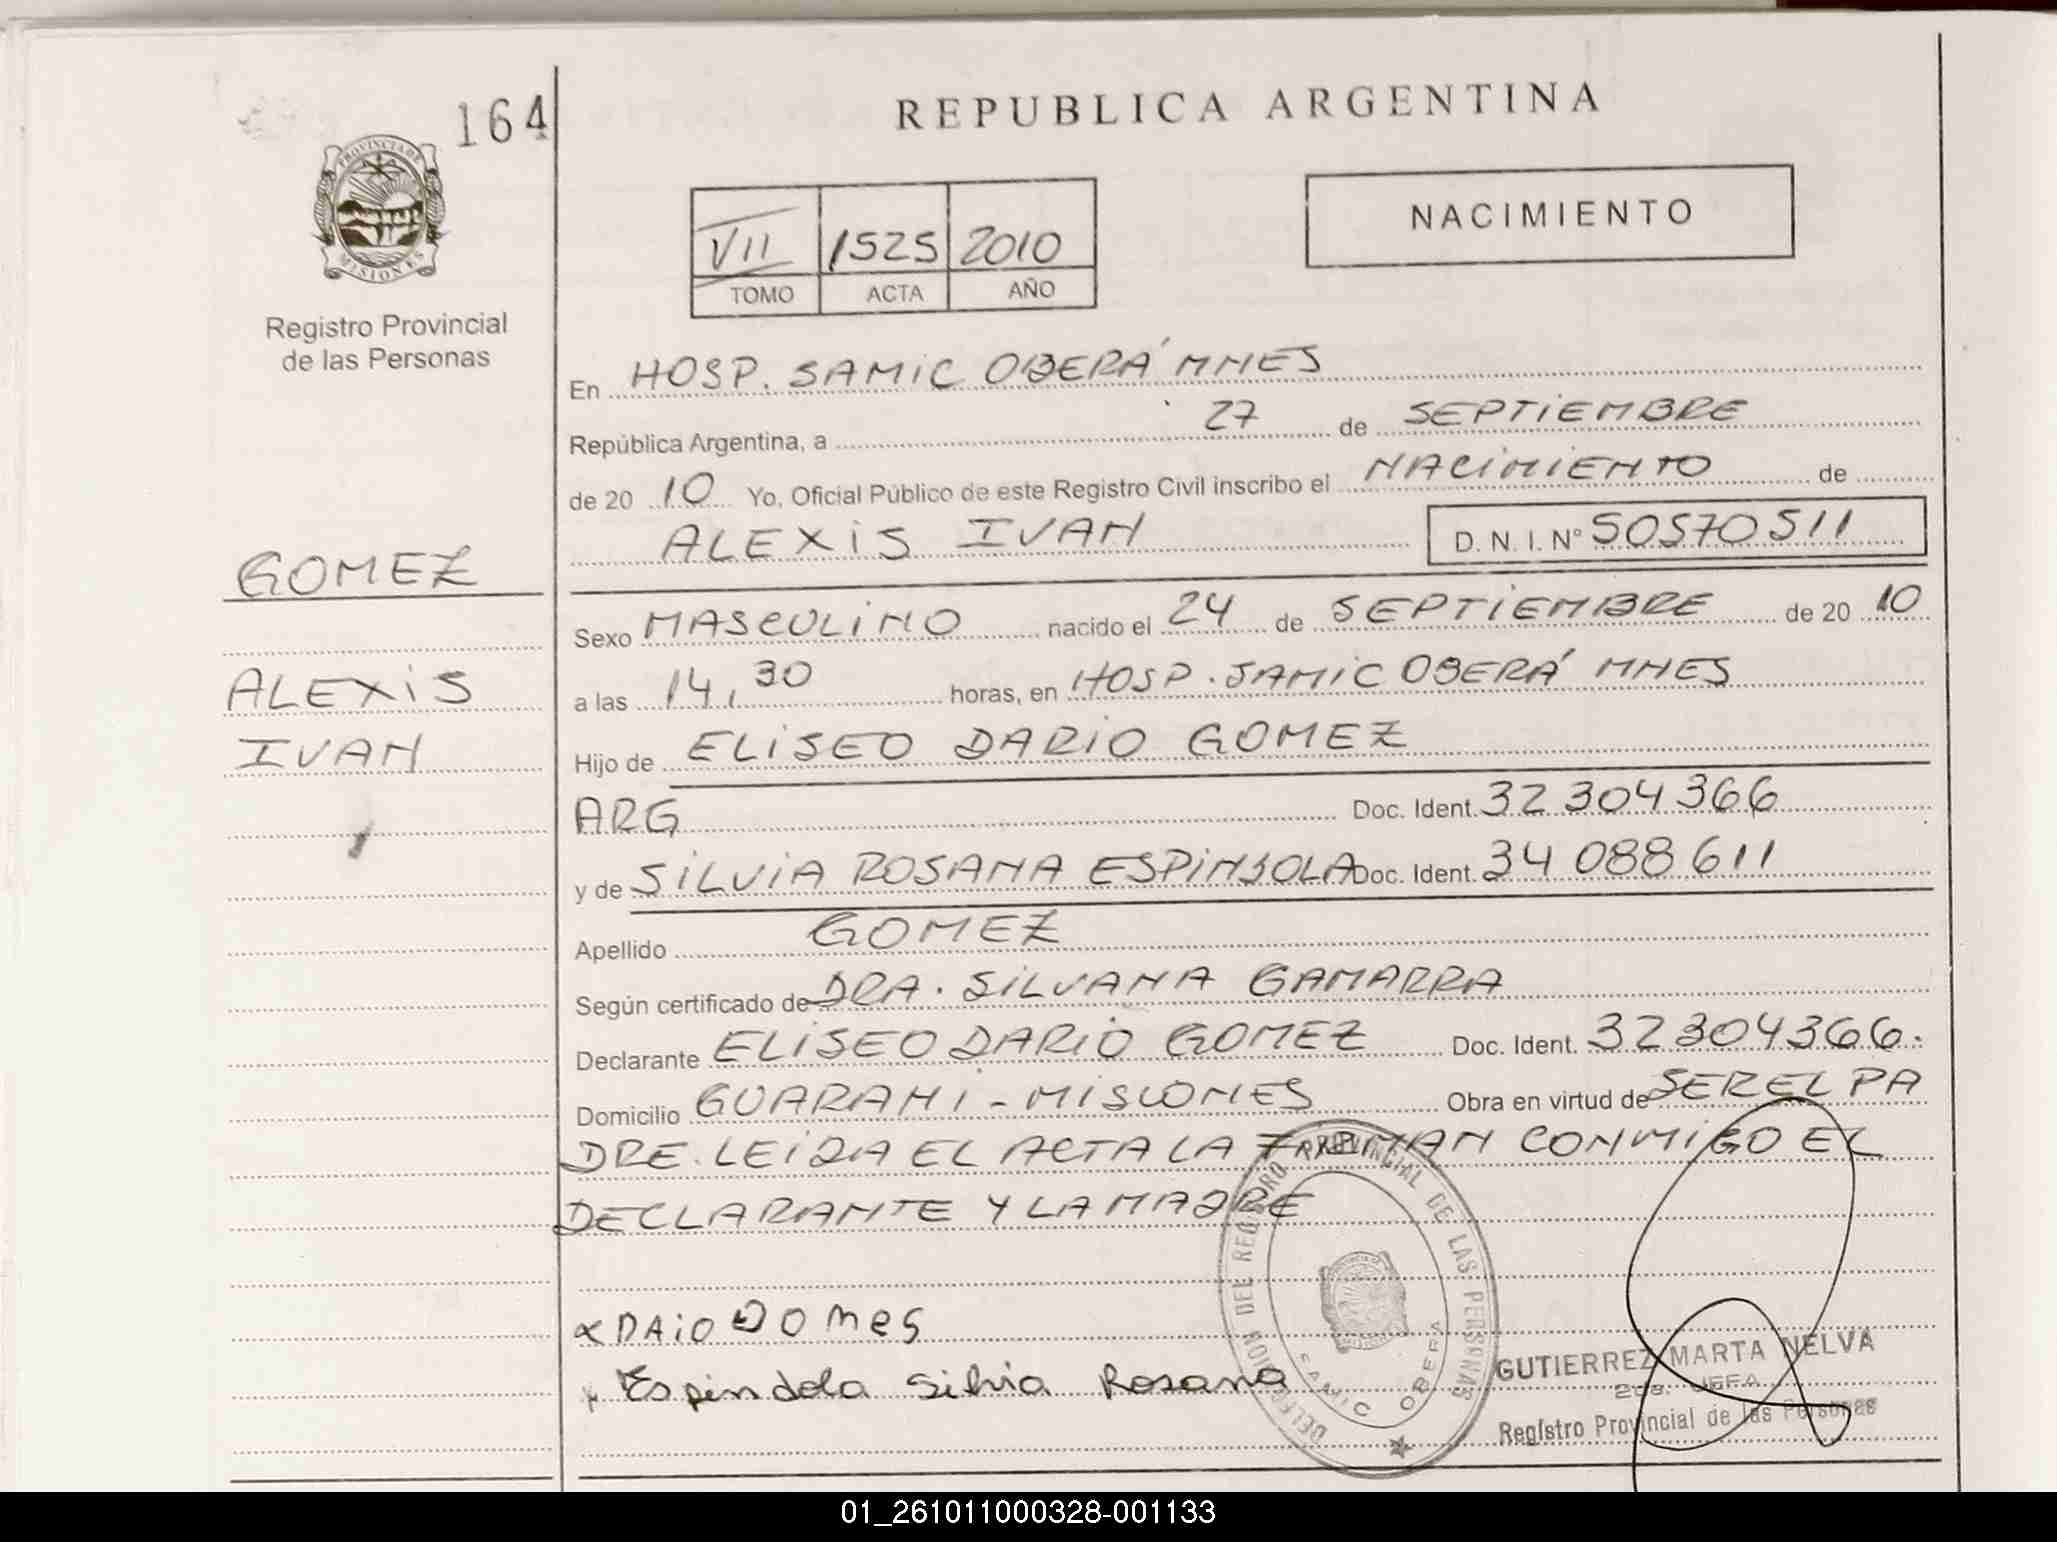 164
PROVINCIA DE
MISIONES
Registro Provincial
de las Personas
REPUBLICA ARGENTINA
VII 1525 2010
TOMO ACTA AÑO
NACIMIENTO
En HOSP. SAMIC OBERÁ MNES
República Argentina, a 27 de SEPTIEMBRE
de 20 10 Yo, Oficial Público de este Registro Civil inscribo el NACIMIENTO de
ALEXIS IVAN D. N. I. N° 50570511
GOMEZ
ALEXIS
IVAN
Sexo MASCULINO nacido el 24 de SEPTIEMBRE de 20 10
a las 14,30 horas, en HOSP. SAMIC OBERÁ MNES
Hijo de ELISEO DARIO GOMEZ
ARG Doc. Ident. 32304366
y de SILVIA ROSANA ESPINDOLA Doc. Ident. 34088611
Apellido GOMEZ
Según certificado de DRA. SILVANA GAMARRA
Declarante ELISEO DARIO GOMEZ Doc. Ident. 32304366.
Domicilio GUARANI - MISIONES Obra en virtud de SER EL PA
DRE. LEIDA EL ACTA LA FIRMAN CONMIGO EL
DECLARANTE Y LA MADRE
DELEGACION DEL REGISTRO PROVINCIAL DE LAS PERSONAS
SAMIC OBERA
x DAiO GOmes
x Espindola Silvia Rosana
GUTIERREZ MARTA NELVA
2da. JEFA
Registro Provincial de las Personas
01_261011000328-001133